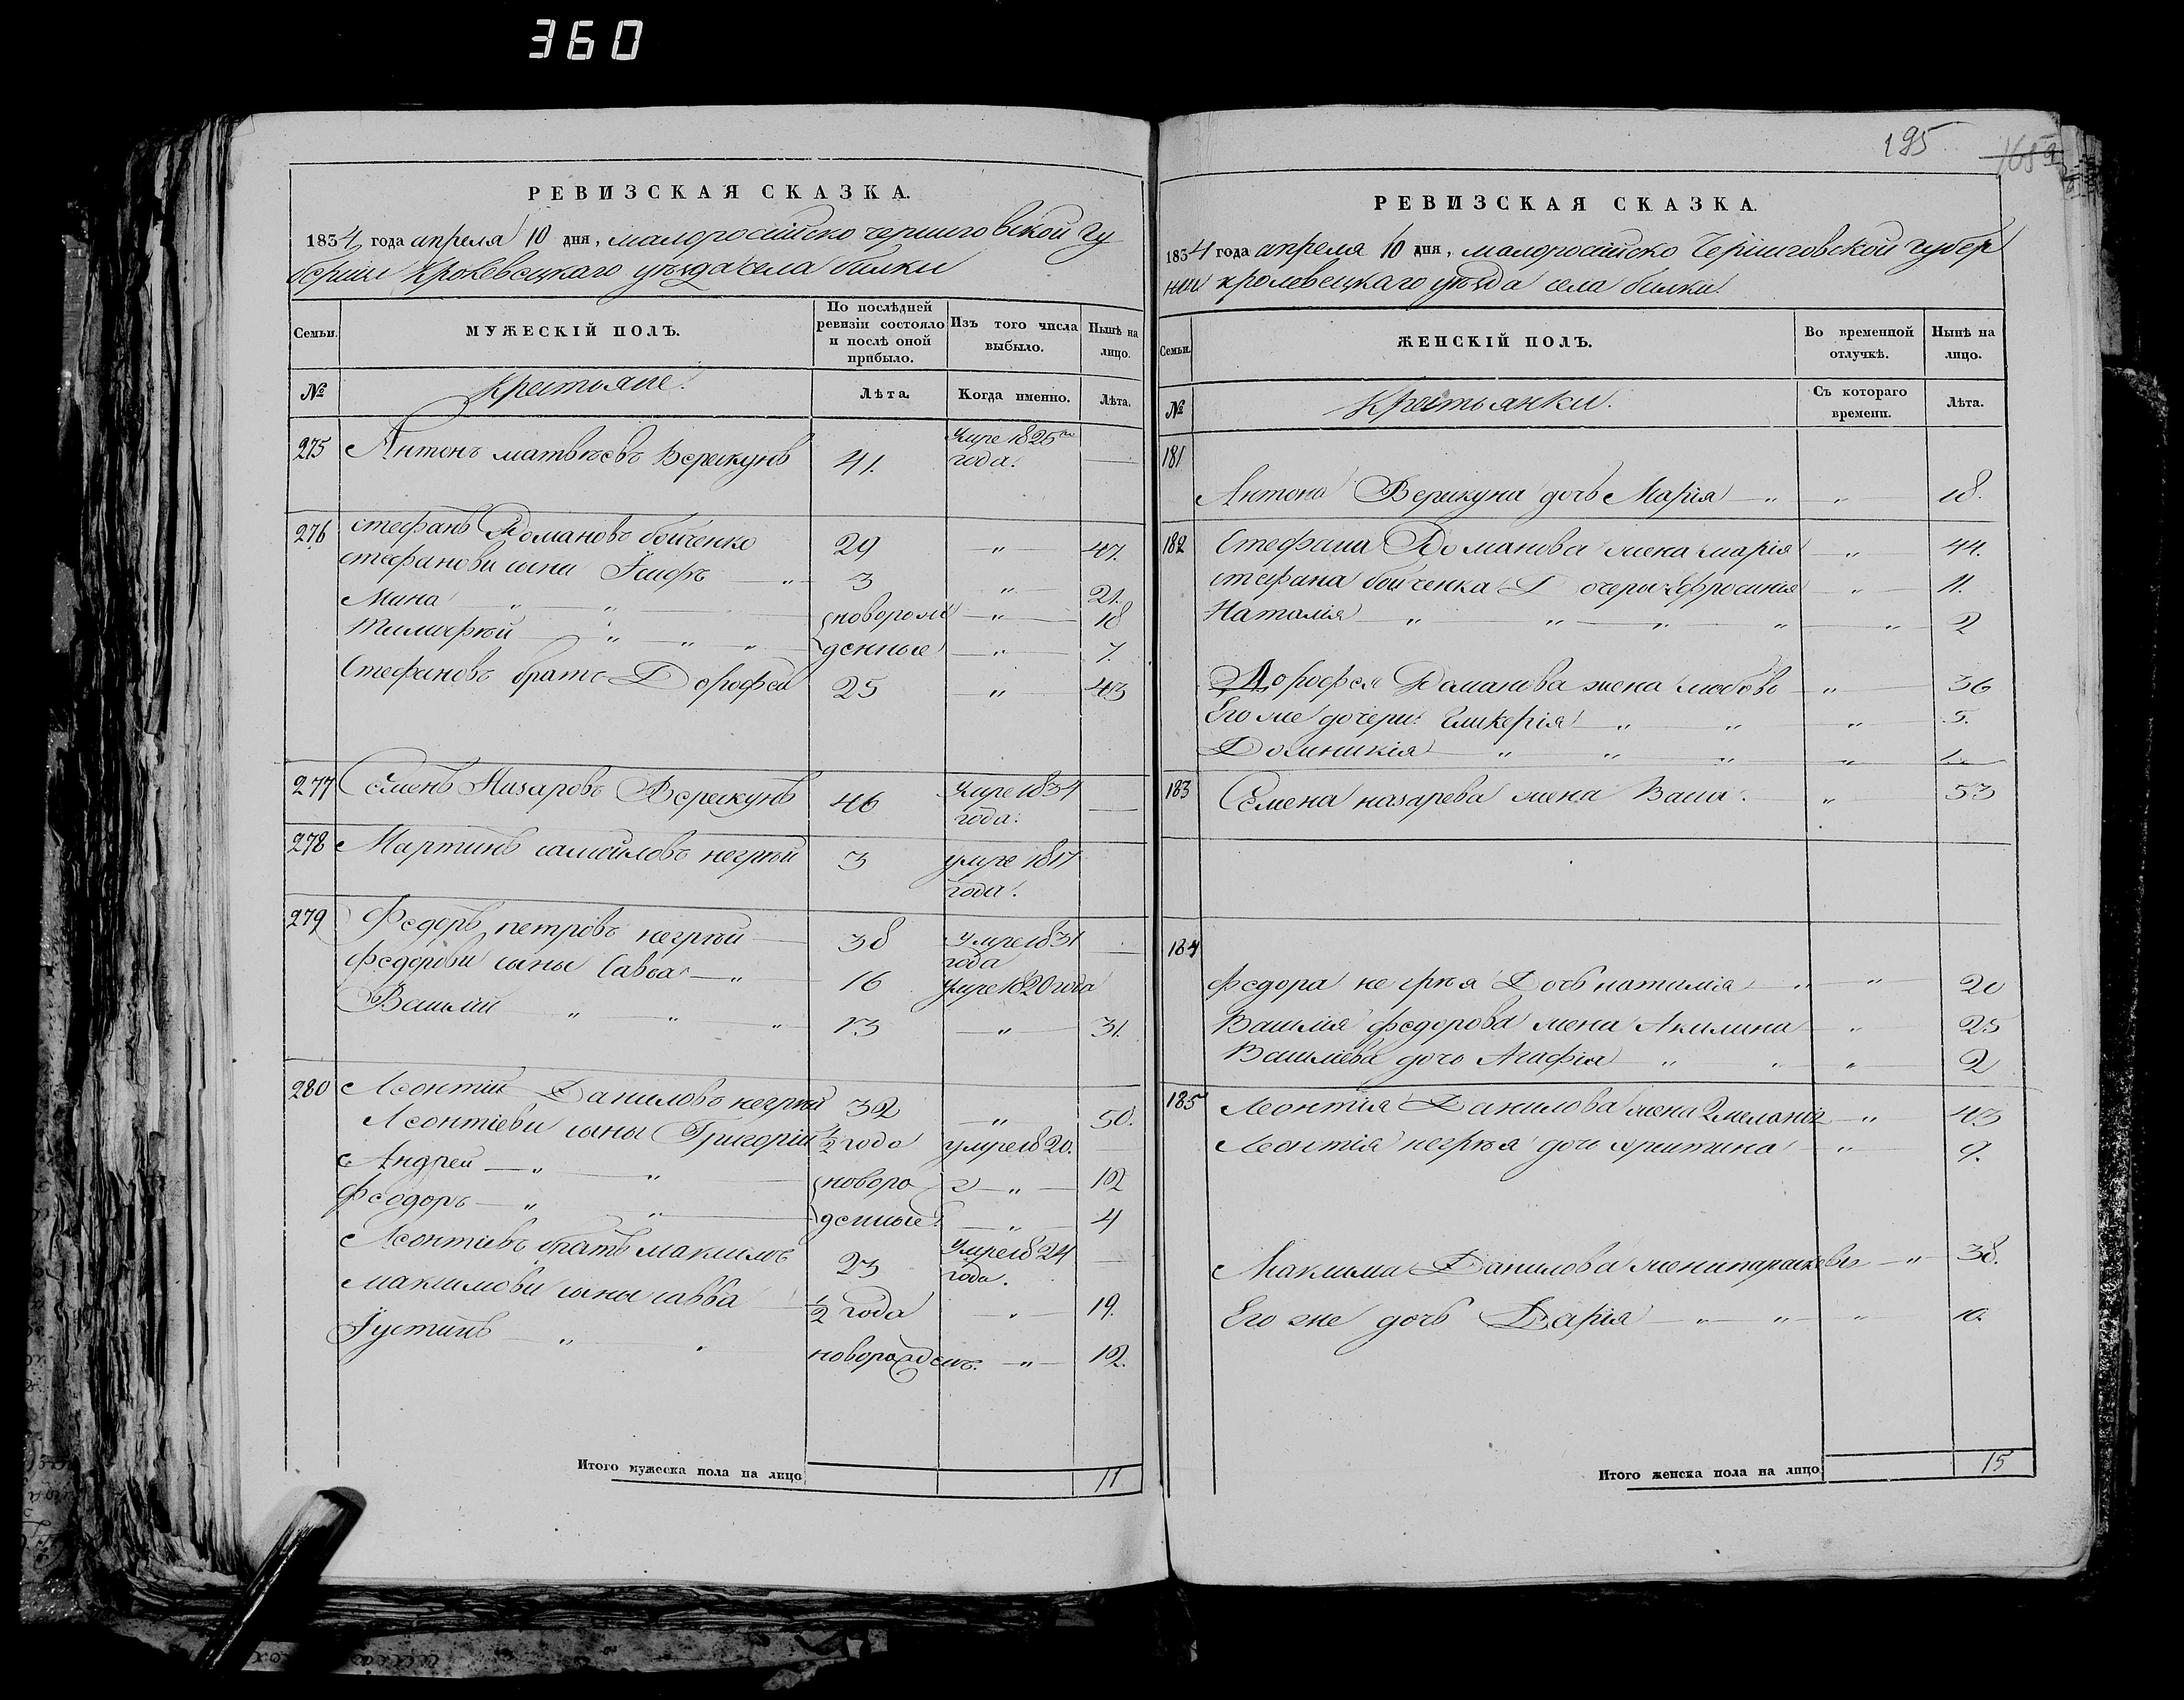 360
РЕВИЗСКАЯ СКАЗКА.
1834 года апреля 10 дня, малоросійско черниговской гу
берніи Кролевецкаго уѣзда села билки
Семьи. МУЖЕСКІЙ ПОЛЪ. По послѣдней ревизіи состояло и послѣ оной прибыло. Изъ того числа выбыло. Нынѣ на лицо.
№ Крестьяне. Лѣта. Когда именно. Лѣта.
275 Антонъ матвѣевъ Верикунъ 41. Умре 1825го года. —
276 стефанъ Романовъ бойченко 29 — „ — 47.
стефанови сыни Іосифъ — „ — 3 „ 21.
Мина „ „ новорож — „ — 18
Тимофѣй „ „ „ денные — „ — 7.
Стефановъ братъ Дорофей 25 — „ 43
277 Семенъ Назаровъ Верикунъ 46 Умре 1834 года. —
278 Мартинъ самойловъ негрѣй 3 умре 1817 года.
279 Федоръ петровъ негрѣй — 38 Умре 1831 года —
федорови сыны Савва — „ — 16 умре 1820 года
Василій „ „ „ 13 — „ — 31.
280 Леонтій Даниловъ негрѣй 32 — „ — 50.
Леонтіеви сыны Григорій ½ года умре 1820. —
Андрей — „ „ новоро „ 12
Феодоръ — „ „ денные — „ — 4
Леонтіевъ братъ максимъ 23 Умре 1824 года. —
максимови сыны савва ½ года „ 19.
Іустинъ — „ „ новорожденъ. — „ — 12.
Итого мужеска пола на лицо 11
195
РЕВИЗСКАЯ СКАЗКА.
1834 года апреля 10 дня, малоросійско Черниговской губер
ніи кролевецкаго уѣзда села билки.
Семьи. ЖЕНСКІЙ ПОЛЪ. Во временной отлучкѣ. Нынѣ на лицо.
№ Крестьянки. Съ котораго времени. Лѣта.
181
Антона Верикуна дочь Марія — „ „ 18.
182 Стефана Романова жена марія — „ — 44.
стефана бойченка Дочери Ефросинія — „ — 11.
Наталія — „ — „ — „ — „ — „ — 2
Дорофея Романова жена любовь — „ — 36
Его же дочери Гликерія — „ „ „ 5.
Домникія „ „ „ „ 1
183 Семена назарева жена Васса. „ 53
184
федора негрѣя Дочь наталія — „ — „ — 20
Василія федорова жена Акилина — „ 25
Васильева дочь Агафія „ „ „ 2
185 Леонтія Данилова жена 2 меланія — „ 43
Леонтія негрѣя дочь христина — „ — 9.
Максима Данилова жена параскевія — „ — 38.
Его же дочь Дарія — „ — „ — „ — 10.
Итого женска пола на лицо 15